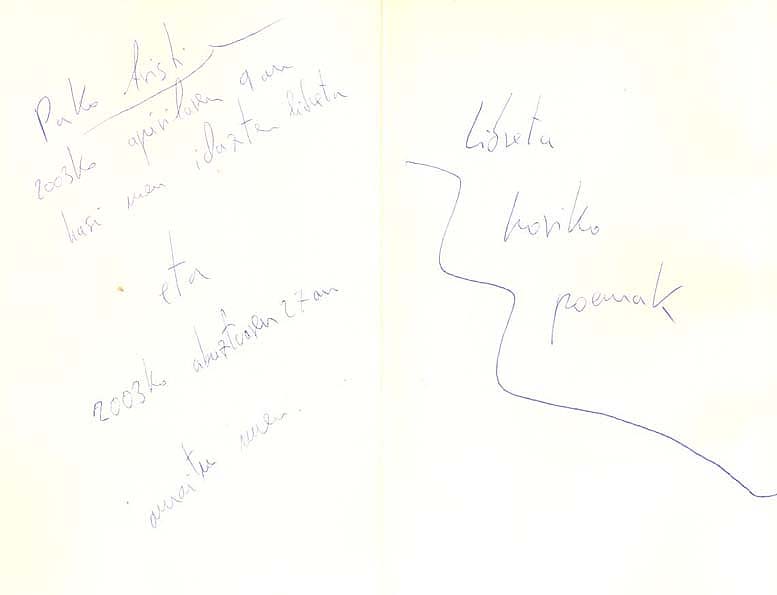 Pako Aristi
2003ko apirilaren 9an
hasi nuen idazten libreta
eta
2003ko abuztuaren 27an
amaitu nuen.
Libreta
horiko
poemak